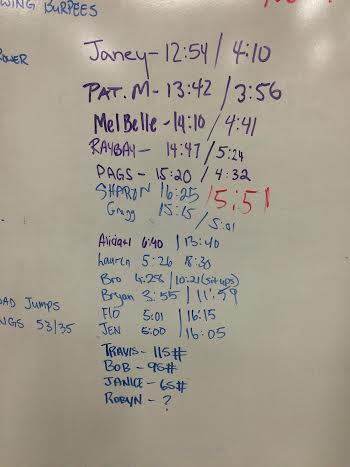 WING BURPEES
OWER
Janey - 12:54 / 4:10
PAT. M - 13:42 / 3:56
MelBelle - 14:10 / 4:41
RAYBAY - 14:47 / 5:24
PAGS - 15:20 / 4:32
SHARON 16:25 / 5:51
Gregg 15:15 / 5:01
6:40 | 13:40
Lauren 5:26 18:30
Bro 4:28 / 10:21 (situps)
Bryan 3:55 / 11:59
FLO 5:01 | 16:15
JEN 5:00 | 16:05
OAD JUMPS
NGS 53/35
TRAVIS - 115#
BOB - 95#
JANICE - 65#
ROBYN - ?